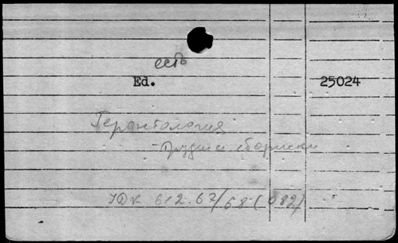 есть
Ed. 25024
Геронтология
Труды и сборники
УДК 612.67/68(082)